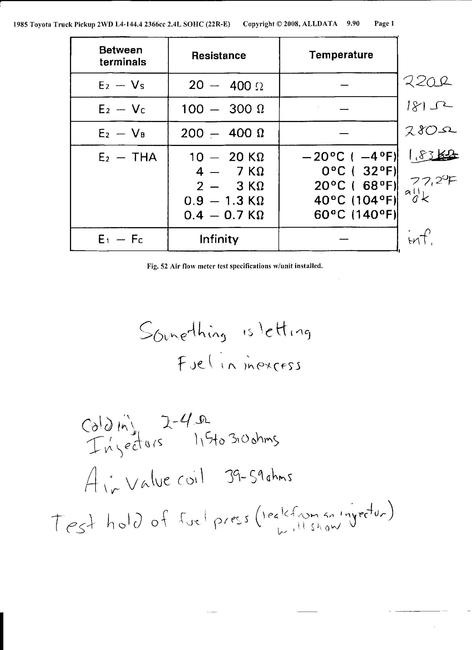 1985 Toyota Truck Pickup 2WD L4-144.4 2366cc 2.4L SOHC (22R-E) Copyright © 2008, ALLDATA 9.90 Page 1
Between terminals Resistance Temperature
E2 — VS 20 — 400 Ω — 220Ω
E2 — VC 100 — 300 Ω — 181 Ω
E2 — VB 200 — 400 Ω — 280Ω
E2 — THA 10 — 20 KΩ —20°C ( —4°F) 1.83KΩ
4 — 7 KΩ 0°C ( 32°F) 77.2°F
2 — 3 KΩ 20°C ( 68°F) all
0.9 — 1.3 KΩ 40°C (104°F) ok
0.4 — 0.7 KΩ 60°C (140°F)
E1 — FC Infinity — inf.
Fig. 52 Air flow meter test specifications w/unit installed.
Something is letting
Fuel in inexcess
Cold inj 2-4 Ω
Injectors 1,5 to 3,0 ohms
Air Value coil 39-59 ohms
Test hold of fuel press (leak from an injector)
will show